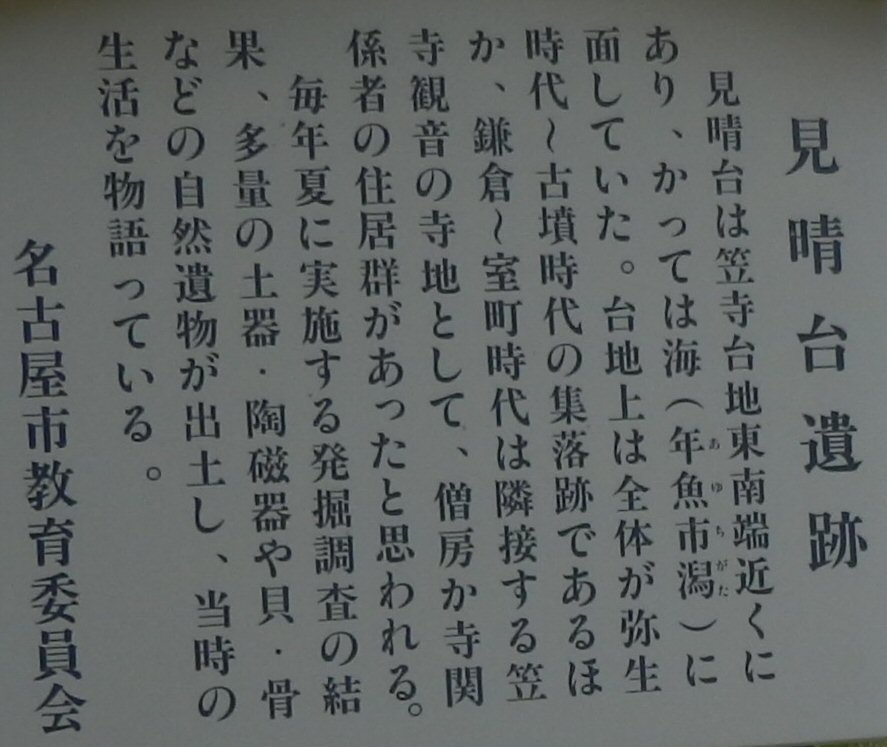 見晴台遺跡
見晴台は笠寺台地東南端近くに
あり、かっては海(年魚市潟)に
あゆちがた
面していた。台地上は全体が弥生
時代〜古墳時代の集落跡であるほ
か、鎌倉〜室町時代は隣接する笠
寺観音の寺地として、僧房か寺関
係者の住居群があったと思われる。
毎年夏に実施する発掘調査の結
果、多量の土器・陶磁器や貝・骨
などの自然遺物が出土し、当時の
生活を物語っている。
名古屋市教育委員会